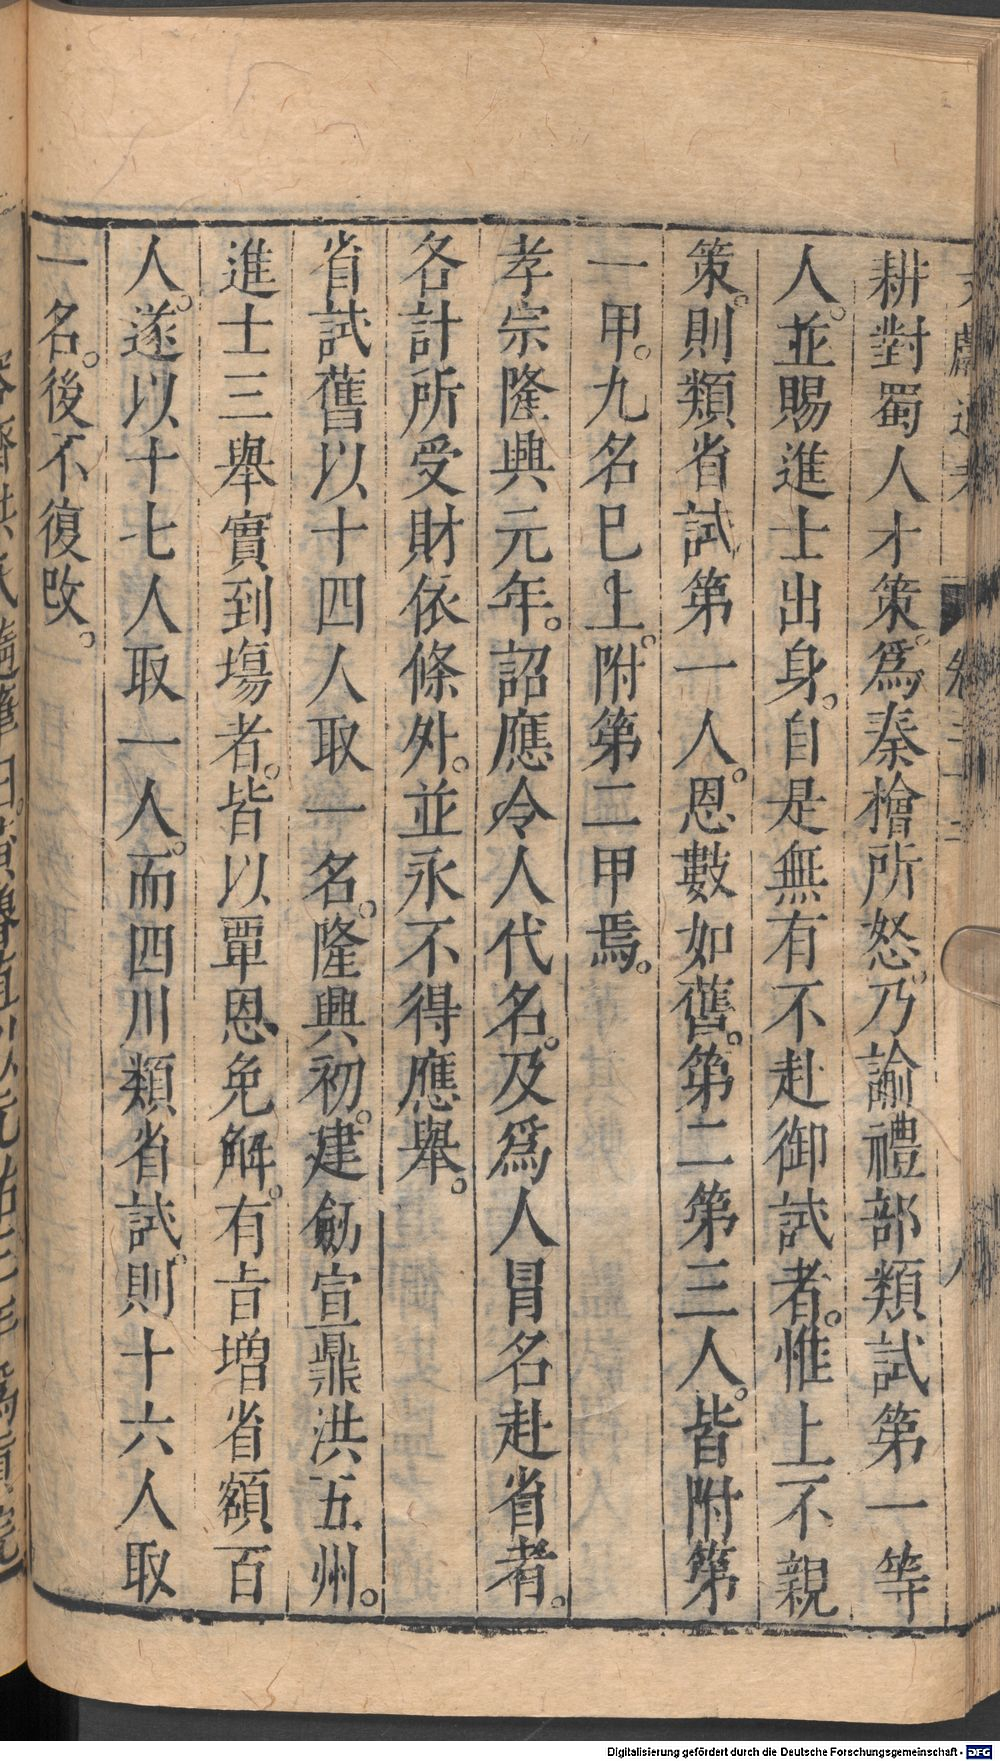 耕對蜀人才策。爲秦檜所怒。乃諭禮部類試第一等
人。並賜進士出身。自是無有不赴御試者。惟上不親
策。則類省試第一人。恩數如舊。第二第三人。皆附第
一甲。九名已上。附第二甲焉。
孝宗隆興元年。詔應令人代名。及爲人冒名赴省者。
各計所受財依條外。並永不得應舉。
省試舊以十四人取一名。隆興初。建劒宣鼎洪五州。
進士三舉實到塲者。皆以覃恩免解。有旨增省額百
人。遂以十七人取一人。而四川類省試。則十六人取
一名。後不復改。
Digitalisierung gefördert durch die Deutsche Forschungsgemeinschaft - DFG